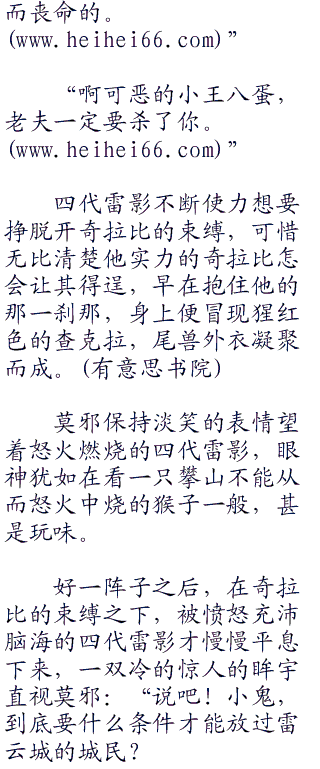 而丧命的。
(www.heihei66.com)”
“啊可恶的小王八蛋，
老夫一定要杀了你。
(www.heihei66.com)”
四代雷影不断使力想要
挣脱开奇拉比的束缚，可惜
无比清楚他实力的奇拉比怎
会让其得逞，早在抱住他的
那一刹那，身上便冒现猩红
色的查克拉，尾兽外衣凝聚
而成。(有意思书院)
莫邪保持淡笑的表情望
着怒火燃烧的四代雷影，眼
神犹如在看一只攀山不能从
而怒火中烧的猴子一般，甚
是玩味。
好一阵子之后，在奇拉
比的束缚之下，被愤怒充沛
脑海的四代雷影才慢慢平息
下来，一双冷的惊人的眸宇
直视莫邪：“说吧！小鬼，
到底要什么条件才能放过雷
云城的城民？